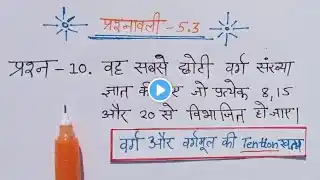 प्रश्नावली-5.3
प्रश्न-10. वह सबसे छोटी वर्ग संख्या
ज्ञात जो प्रत्येक 8,15
और 20 से विभाजित हो जाए।
वर्ग और वर्गमूल की Tention खत्म